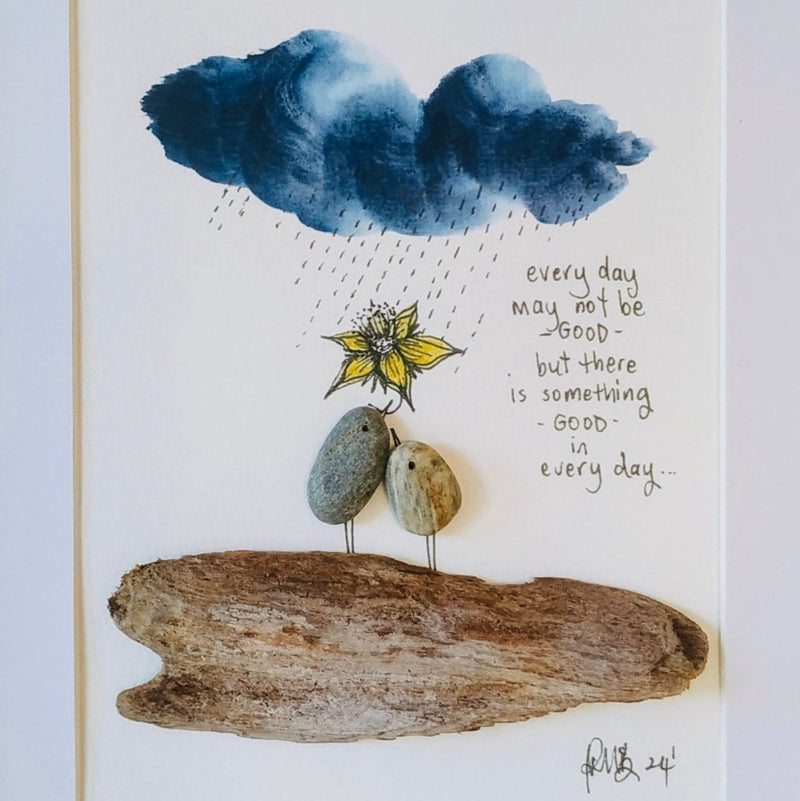 every day
may not be
-GOOD-
but there
is something
-GOOD-
in
every day...
24'